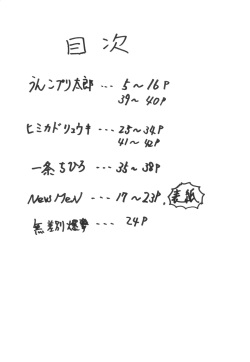 目次
うんこプリ太郎 --- 5〜16P
39〜40P
ヒミカドリュウキ --- 25〜34P
41〜42P
一条ちひろ --- 35〜38P
NewMeN --- 17〜23P,表紙
無差別爆撃 --- 24P